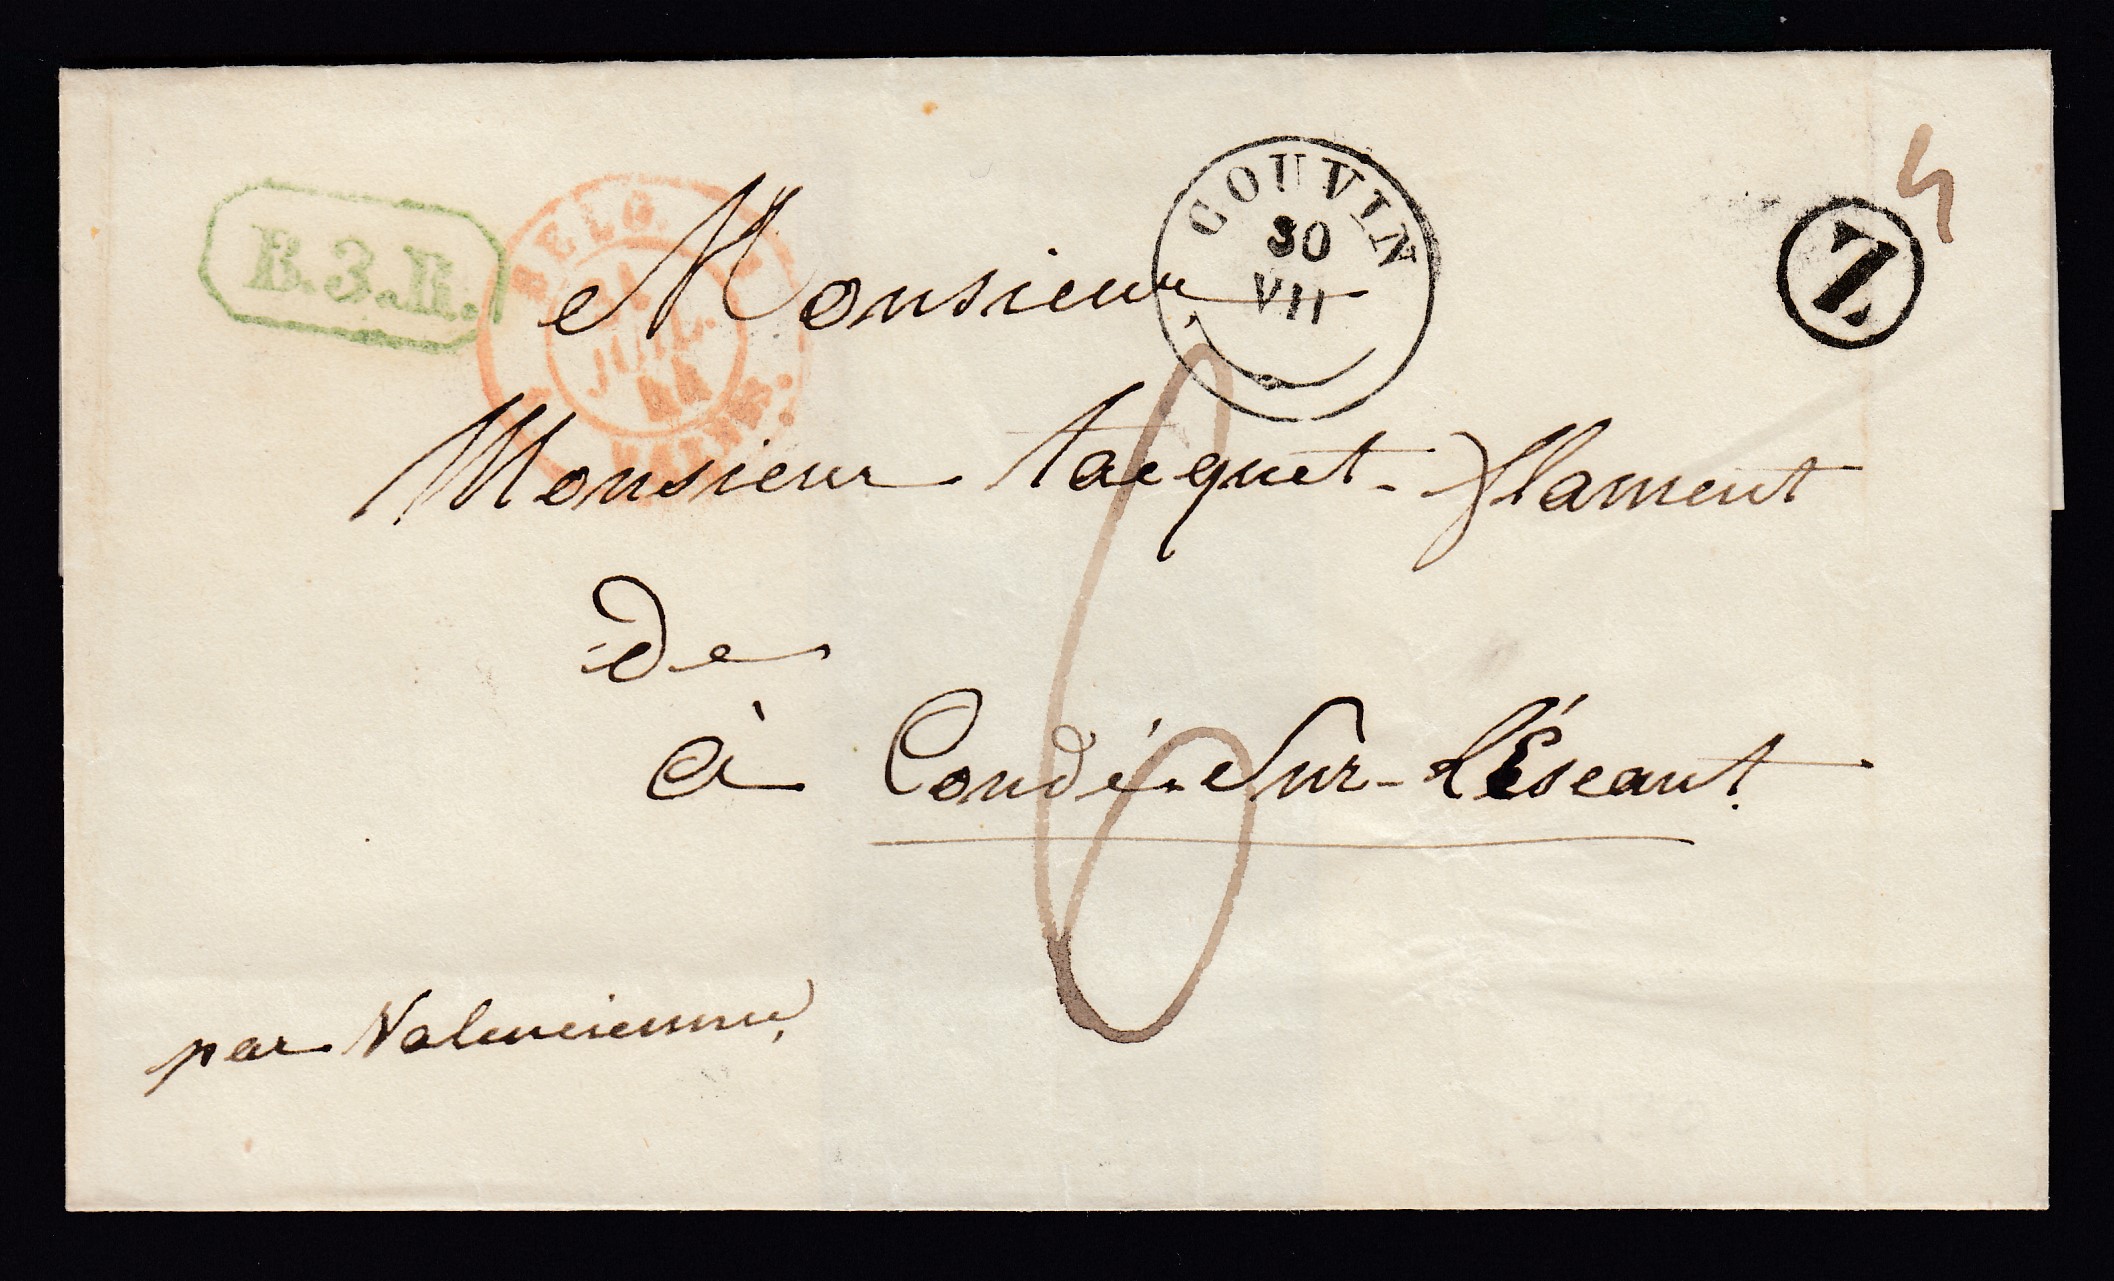 B.3.R.
BELG.
31
JUIL.
44
COUVIN
30
VII
Z
5
Monsieur
Monsieur tacquet-flament
de
à Condé-Sur-l'éscaut.
6
par Valenciennes